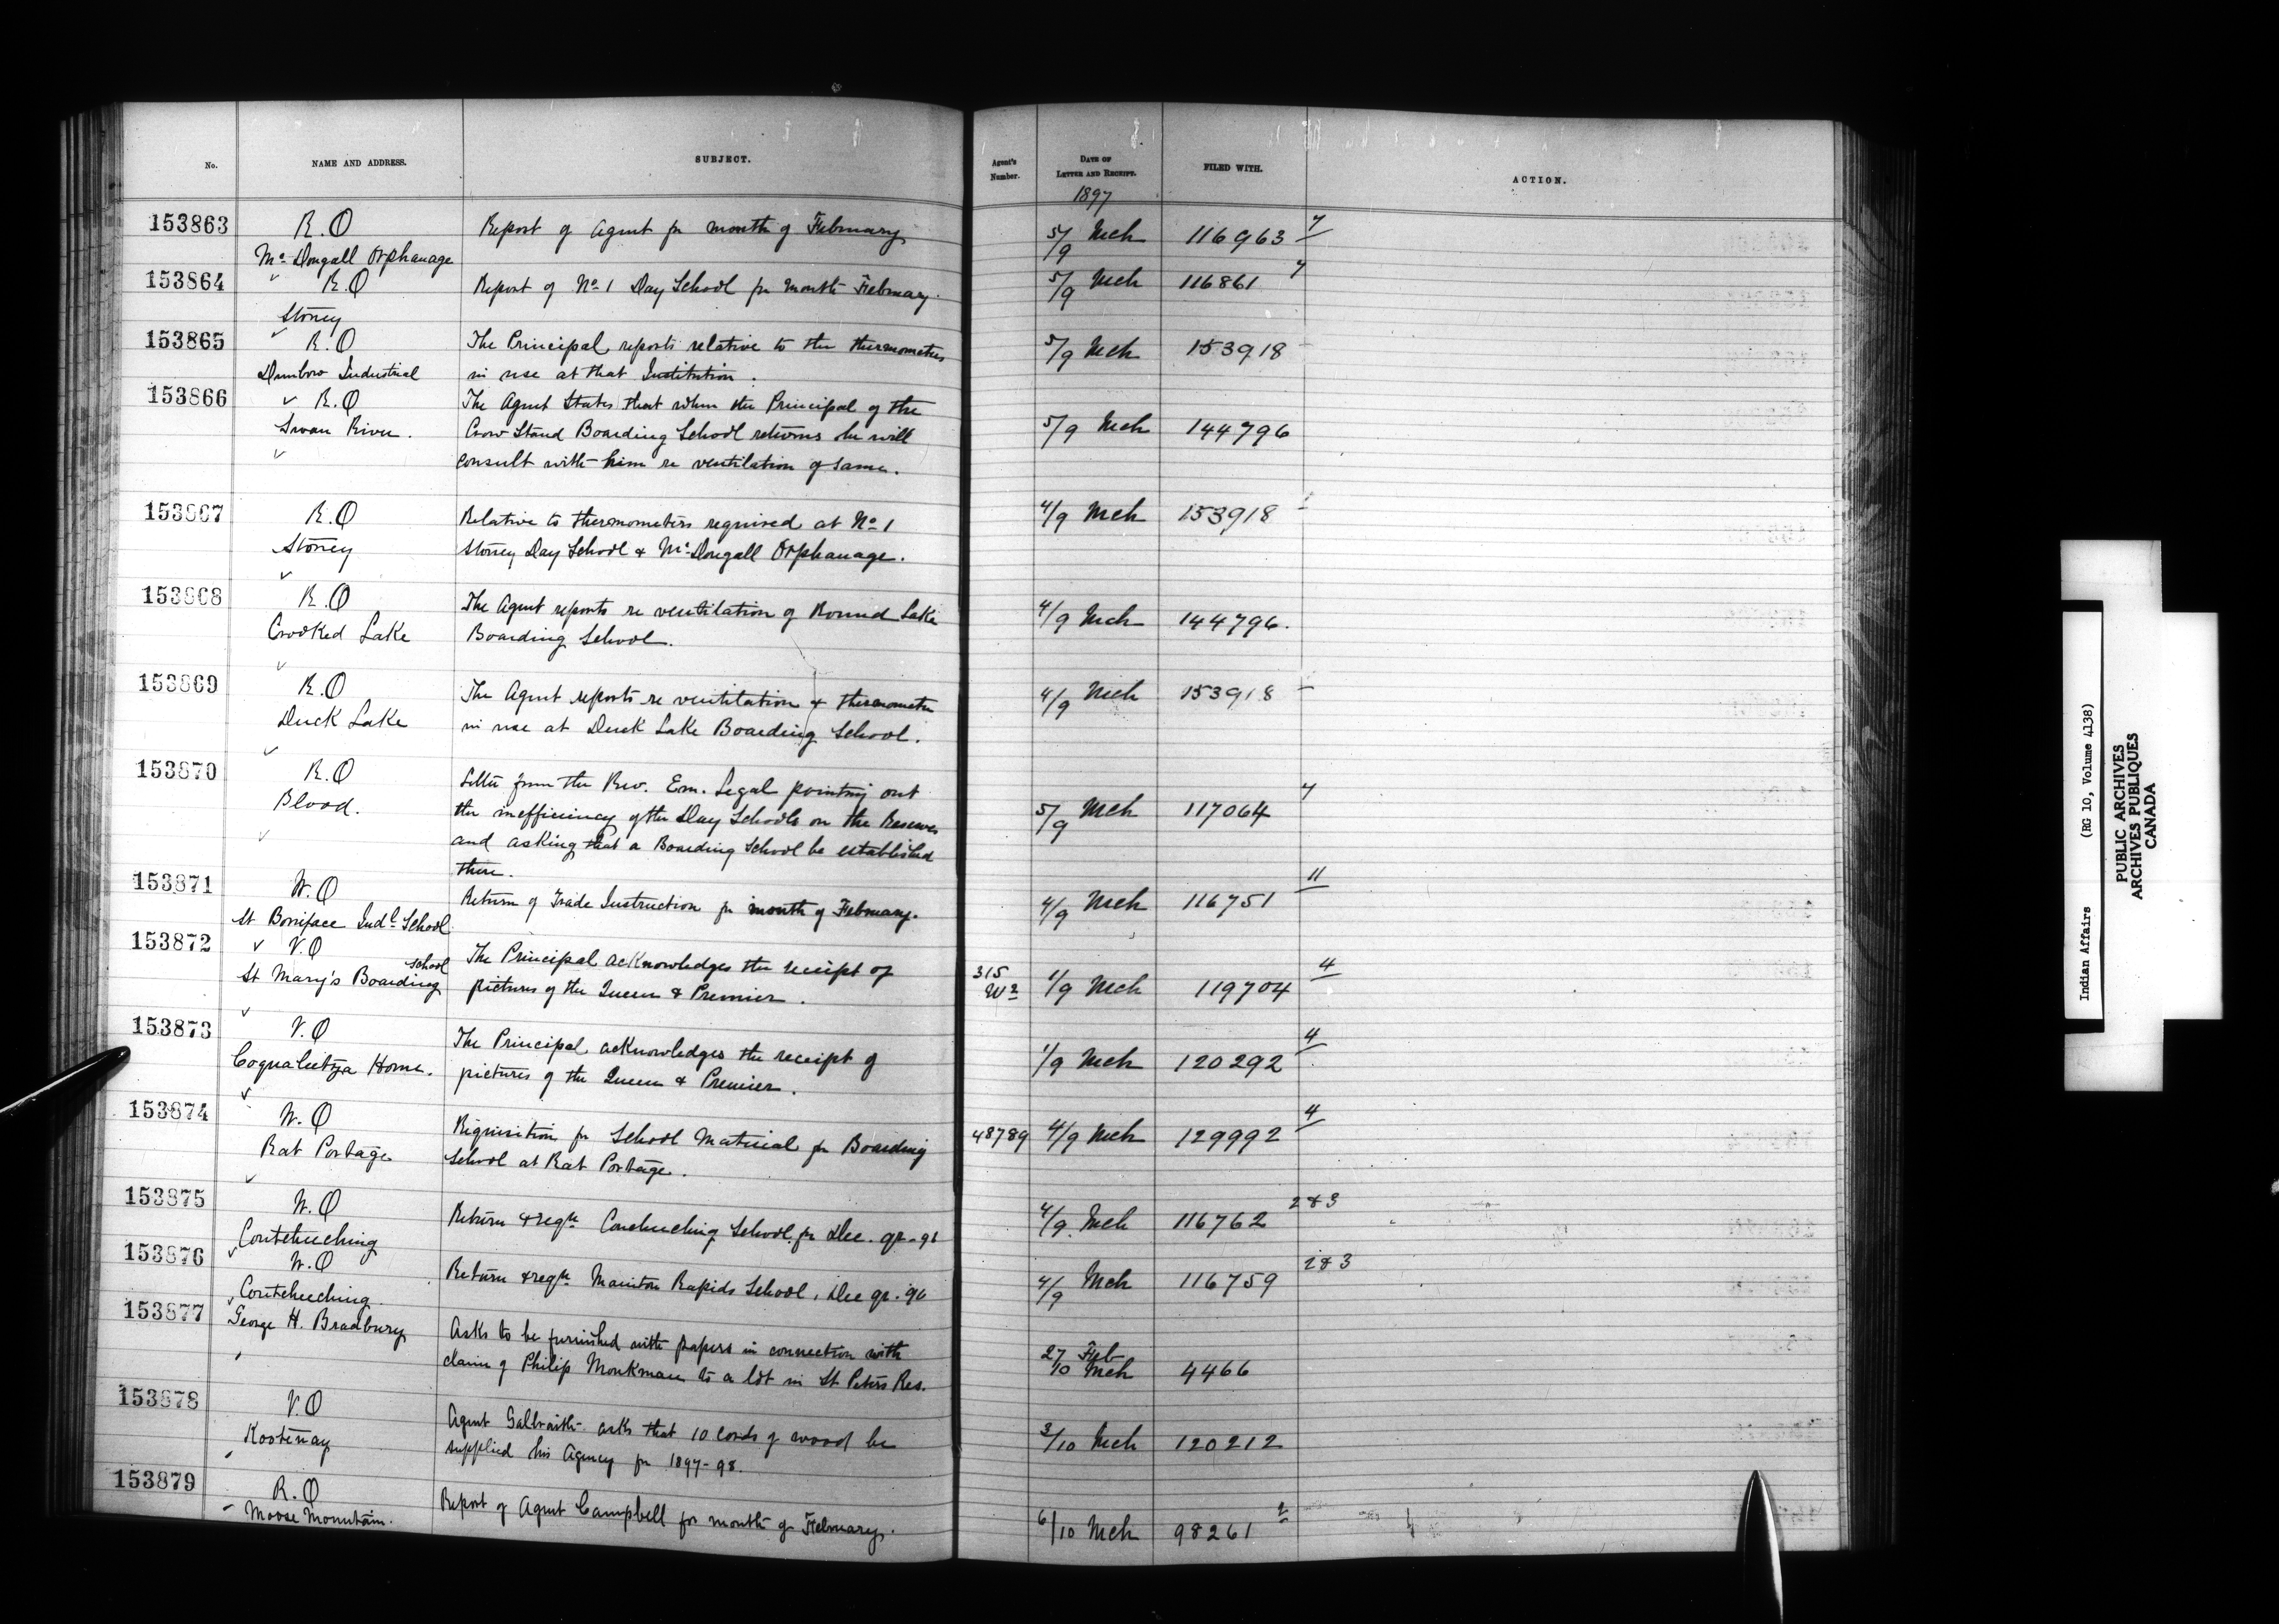 No. NAME AND ADDRESS. SUBJECT. Agent's Number. DATE OF LETTER AND RECEIPT. FILED WITH. ACTION.
1897
153863 R.O Report of Agent for month of February 5/9 Mch 116963 7
Mc Dougall Orphanage
153864 R.O Report of No 1 Day School for month February. 5/9 Mch 116861 7
Stoney
153865 R.O The Principal reports relative to the thermometers 5/9 Mch 153918
Dunbow Industrial in use at that Institution.
153866 R.O The Agent States that when the Principal of the
Swan River. Crow Stand Boarding School returns he will 5/9 Mch 144796
consult with him re ventilation of same.
153867 R.O Relative to thermometers required at No 1 4/9 Mch 153918
Stoney Stoney Day School & Mc Dougall Orphanage.
153868 R.O The Agent reports re ventilation of Round Lake 4/9 Mch 144796.
Crooked Lake Boarding School.
153869 R.O The Agent reports re ventilation & thermometer 4/9 Mch 153918
Duck Lake in use at Duck Lake Boarding School.
153870 R.O Letter from the Rev. Em. Legal pointing out
Blood. the inefficiency of the Day Schools on the Reserves 5/9 Mch 117064 7
and asking that a Boarding School be established
there.
153871 W.O Return of Trade Instruction for month of February. 4/9 Mch 116751 11
St Boniface Indl School
153872 V.O The Principal acknowledges the receipt of 315
St Mary's Boarding School pictures of the Queen & Premier. W2 1/9 Mch 119704 4
153873 V.O The Principal acknowledges the receipt of
Coqualeetza Home. pictures of the Queen & Premier. 1/9 Mch 120292 4
153874 W.O Requisition for School Material for Boarding 48789 4/9 Mch 129992 4
Rat Portage School at Rat Portage.
153875 W.O Return & reqn Couchuching School for Dec. qr-96 4/9 Mch 116762 2&3
Coutcheeching
153876 W.O Return & reqn Manitou Rapids School, Dec qr. 96 4/9 Mch 116759 2&3
Coutcheeching
153877 George H. Bradbury Asks to be furnished with papers in connection with 27 Feb
claim of Philip Monkman to a lot in St Peters Res. 10 Mch 4466
153878 V.O Agent Galbraith asks that 10 cords of wood be
Kootenay supplied his Agency for 1897-98. 3/10 Mch 120212
153879 R.O Report of Agent Campbell for month of February. 6/10 Mch 98261 2
Moose Mountain.
Indian Affairs (RG 10, Volume 4138)
PUBLIC ARCHIVES
ARCHIVES PUBLIQUES
CANADA